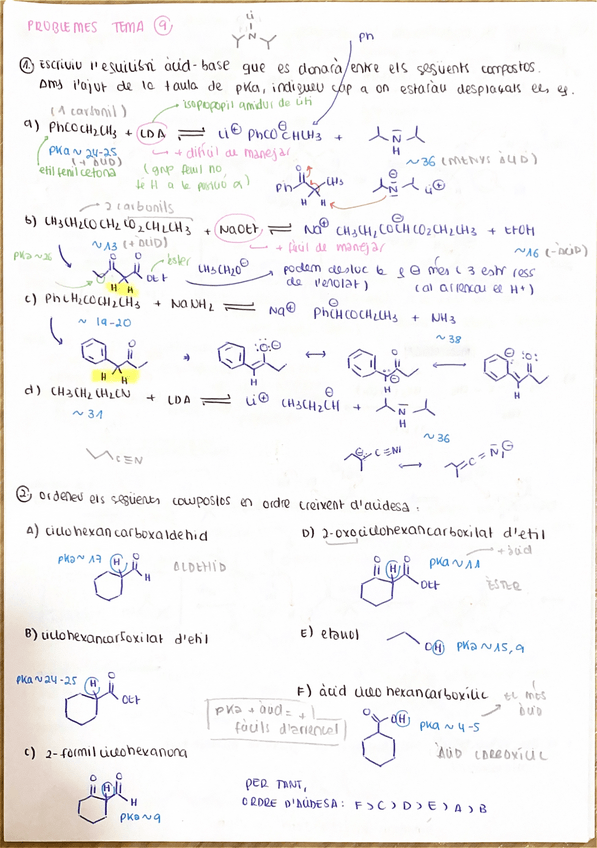 PROBLEMES TEMA 9
Li
N
Ph
1. Escriviu l'equilibri àcid-base que es donarà entre els següents compostos.
Amb l'ajut de la taula de pKa, indiqueu cap a on estarau desplaçats els eq.
(1 carbonil)
isopropopil amidur de liti
a) PhCOCH2CH3 + LDA ⇌ Li⊕ PhCO⊖CHCH3 + N H
pKa ~ 24-25
(+ àcid)
+ difícil de manejar
~36 (menys àcid)
etil fenil cetona
(grup fenil no
té H a la posició α)
Ph O CH3 H H
N Li⊕
2 carbonils
b) CH3CH2COCH2CO2CH2CH3 + NaOEt ⇌ Na⊕ CH3CH2CO⊖CHCO2CH2CH3 + EtOH
~13 (+ àcid)
+ fàcil de manejar
~16 (- àcid)
pKa ~26
èster
O O OEt H H
CH3CH2O⊖
podem desloc la ⊖ més (3 estr ress
de l'enolat) (al arrencar el H+)
c) PhCH2COCH2CH3 + NaNH2 ⇌ Na⊕ Ph⊖CHCOCH2CH3 + NH3
~ 19-20
~ 38
d) CH3CH2CH2CN + LDA ⇌ Li⊕ CH3CH2CH⊖ + N H
~ 31
~36
C≡N
C≡N ↔ C=N⊖
2. Ordeneu els següents compostos en ordre creixent d'acidesa:
A) ciclohexancarboxaldehid
pKa ~ 17
H O H
ALDEHID
D) 2-oxociclohexancarboxilat d'etil
O H O OEt
pKa ~ 11
+ àcid
ÈSTER
B) ciclohexancarboxilat d'etil
pKa ~ 24-25
H O OEt
E) etanol
OH pKa ~ 15,9
pKa + àcid = +
fàcils d'arrencar
F) àcid ciclohexancarboxílic
EL MÉS
ÀCID
O OH pKa ~ 4-5
ÀCID CARBOXÍLIC
C) 2-formilciclohexanona
O H O H
pKa ~ 9
PER TANT,
ORDRE D'ACIDESA: F > C > D > E > A > B